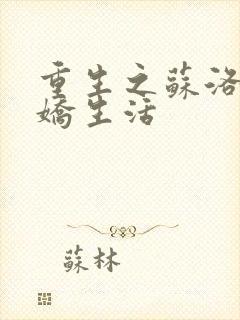 重生之蘇洛
嬌生活
蘇林